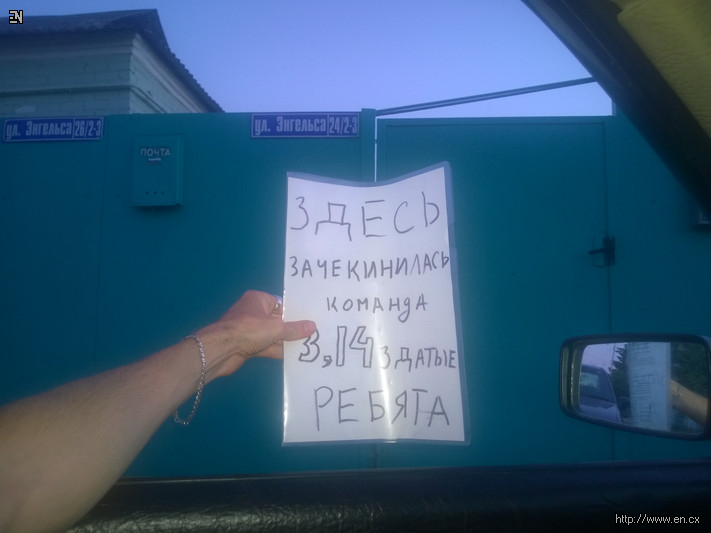 EN
ул. Энгельса 26/2-3
ул. Энгельса 24/2-3
ПОЧТА
ЗДЕСЬ
ЗАЧЕКИНИЛАСЬ
КОМАНДА
3,14ЗДАТЫЕ
РЕБЯТА
http://www.en.cx